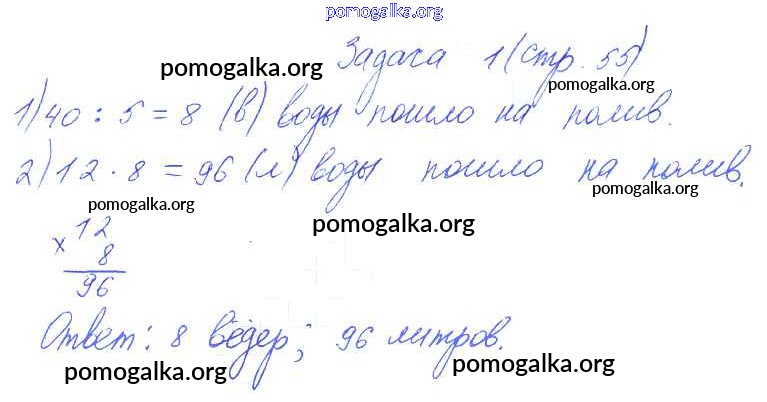 pomogalka.org
Задача 1 (стр. 55)
pomogalka.org
pomogalka.org
1) 40 : 5 = 8 (в) воды пошло на полив.
2) 12 · 8 = 96 (л) воды пошло на полив.
pomogalka.org
pomogalka.org
pomogalka.org
12
× 8
96
Ответ: 8 вёдер; 96 литров.
pomogalka.org
pomogalka.org